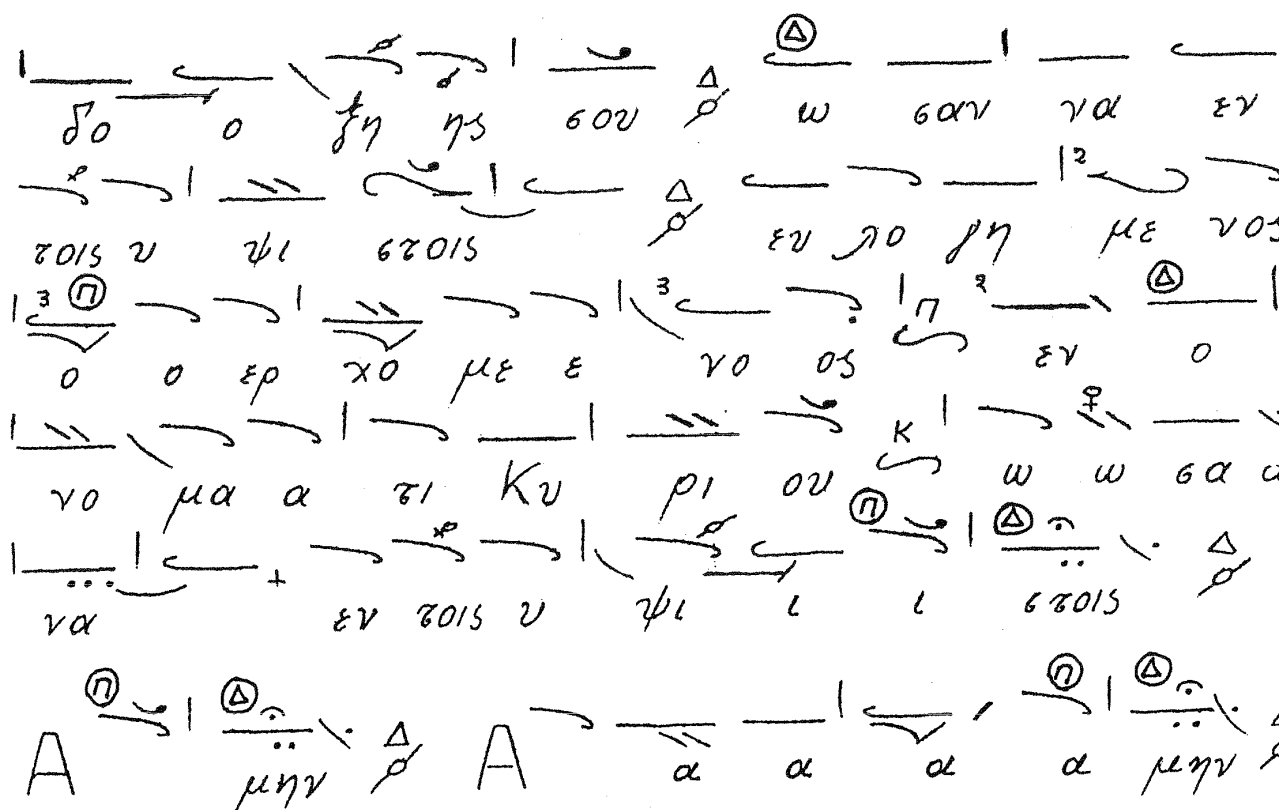 δο ο ξη ης σου ω σαν να εν
τοις υ ψι στοις ευ λο γη με νος
ο ο ερ χο με ε νο ος εν ο
νο μα α τι Κυ ρι ου ω ω σα
να εν τοις υ ψι ι ι στοις
Α μην Α α α α α μην